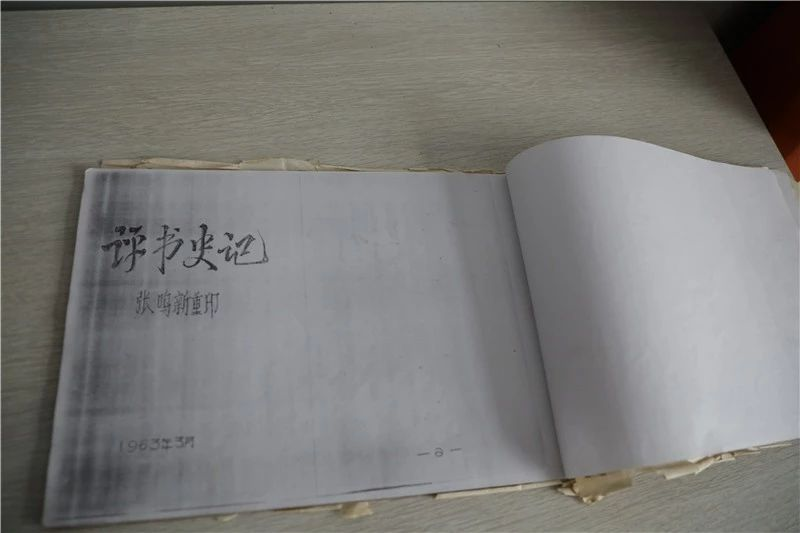 评书史记
张鸣新重印
1963年3月
— a —